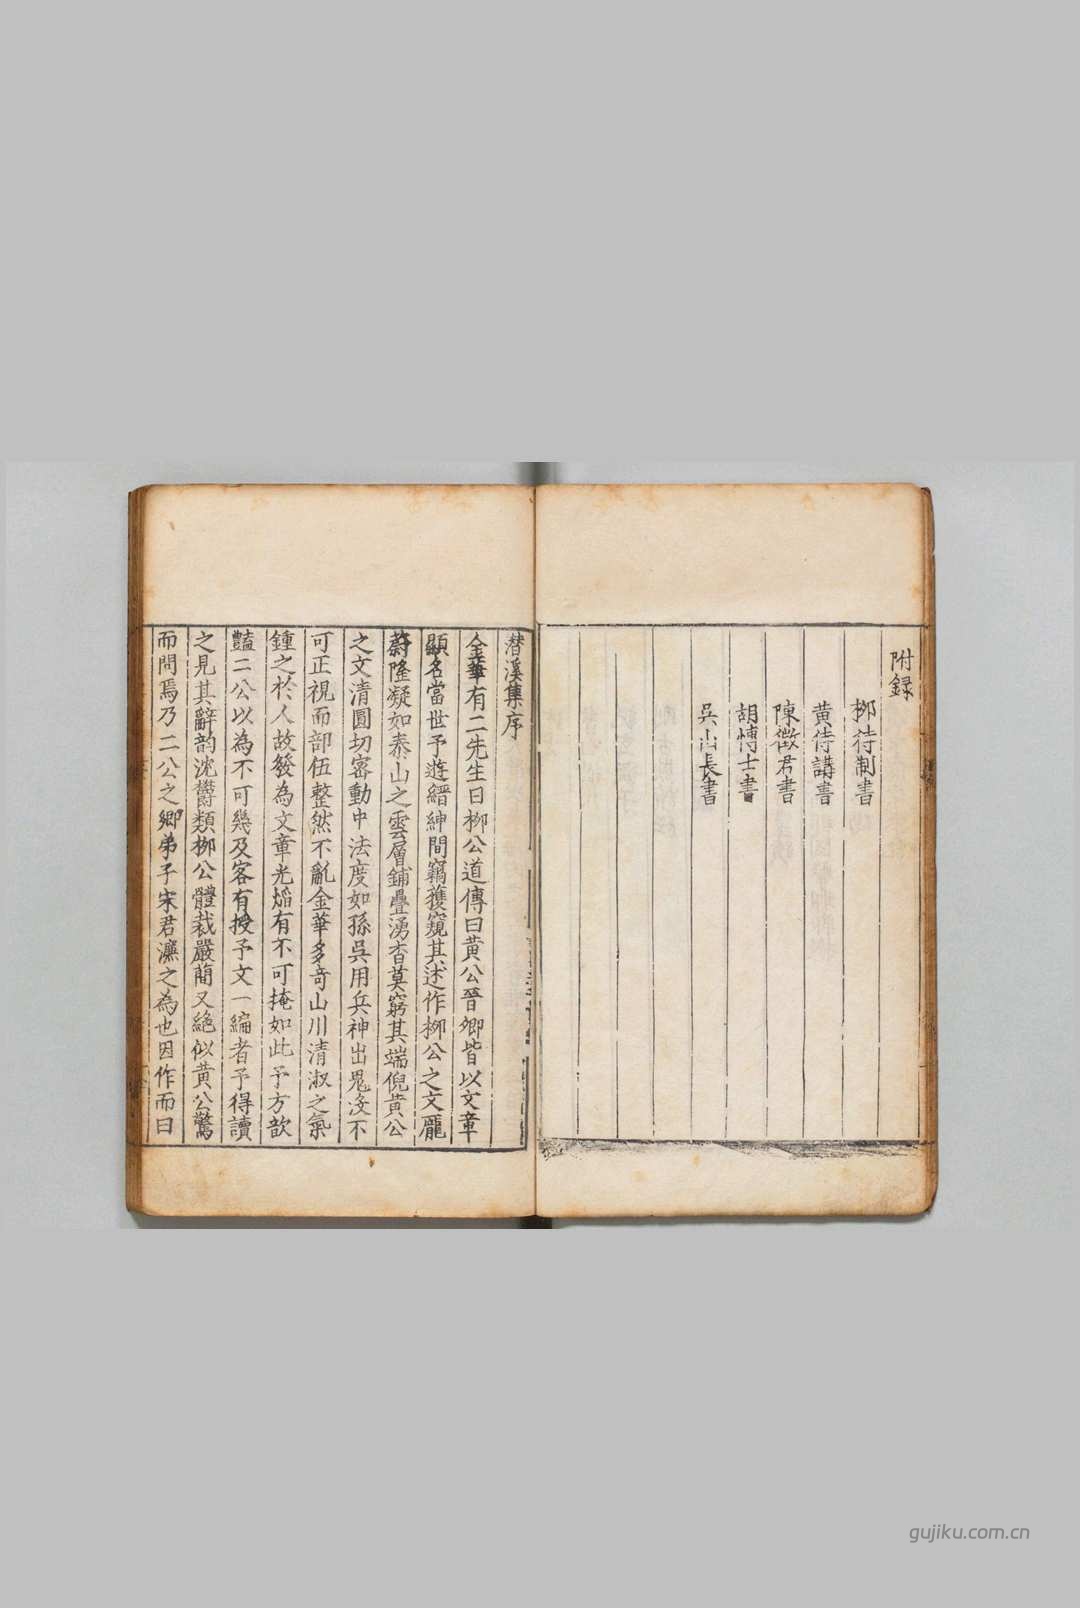 附録
柳待制書
黄待講書
陳徵君書
胡愽士書
吳山長書
潜溪集序
金華有二先生曰柳公道傳曰黄公晉卿皆以文章
顯名當世予遊縉紳間竊獲窺其述作柳公之文龐
蔚隆凝如泰山之雲層鋪疊湧杳莫窮其端倪黄公
之文清圓切密動中法度如孫吳用兵神出鬼没不
可正視而部伍整然不亂金華多奇山川清淑之氣
鍾之於人故發為文章光熖有不可掩如此予方歆
豔二公以為不可幾及客有授予文一編者予得讀
之見其辭韵沈欝類柳公體裁嚴簡又絶似黄公驚
而問焉乃二公之鄉弟子宋君濂之為也因作而曰
gujiku.com.cn